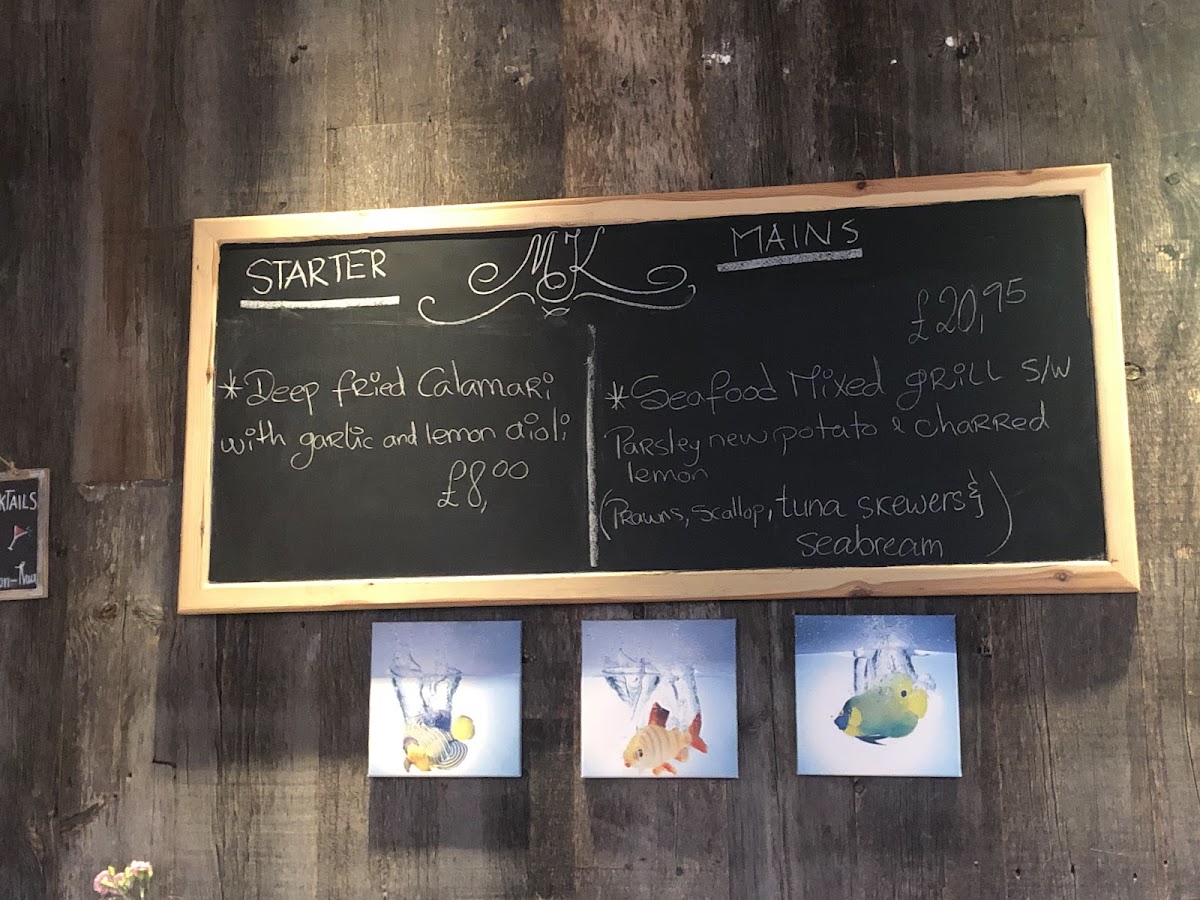 STARTER
MK
MAINS
*Deep fried Calamari
with garlic and lemon aioli
£8,00
£20,95
*Seafood Mixed grill S/W
Parsley new potato & charred
lemon
(Prawns, scallop, tuna skewers &
seabream)
KTAILS